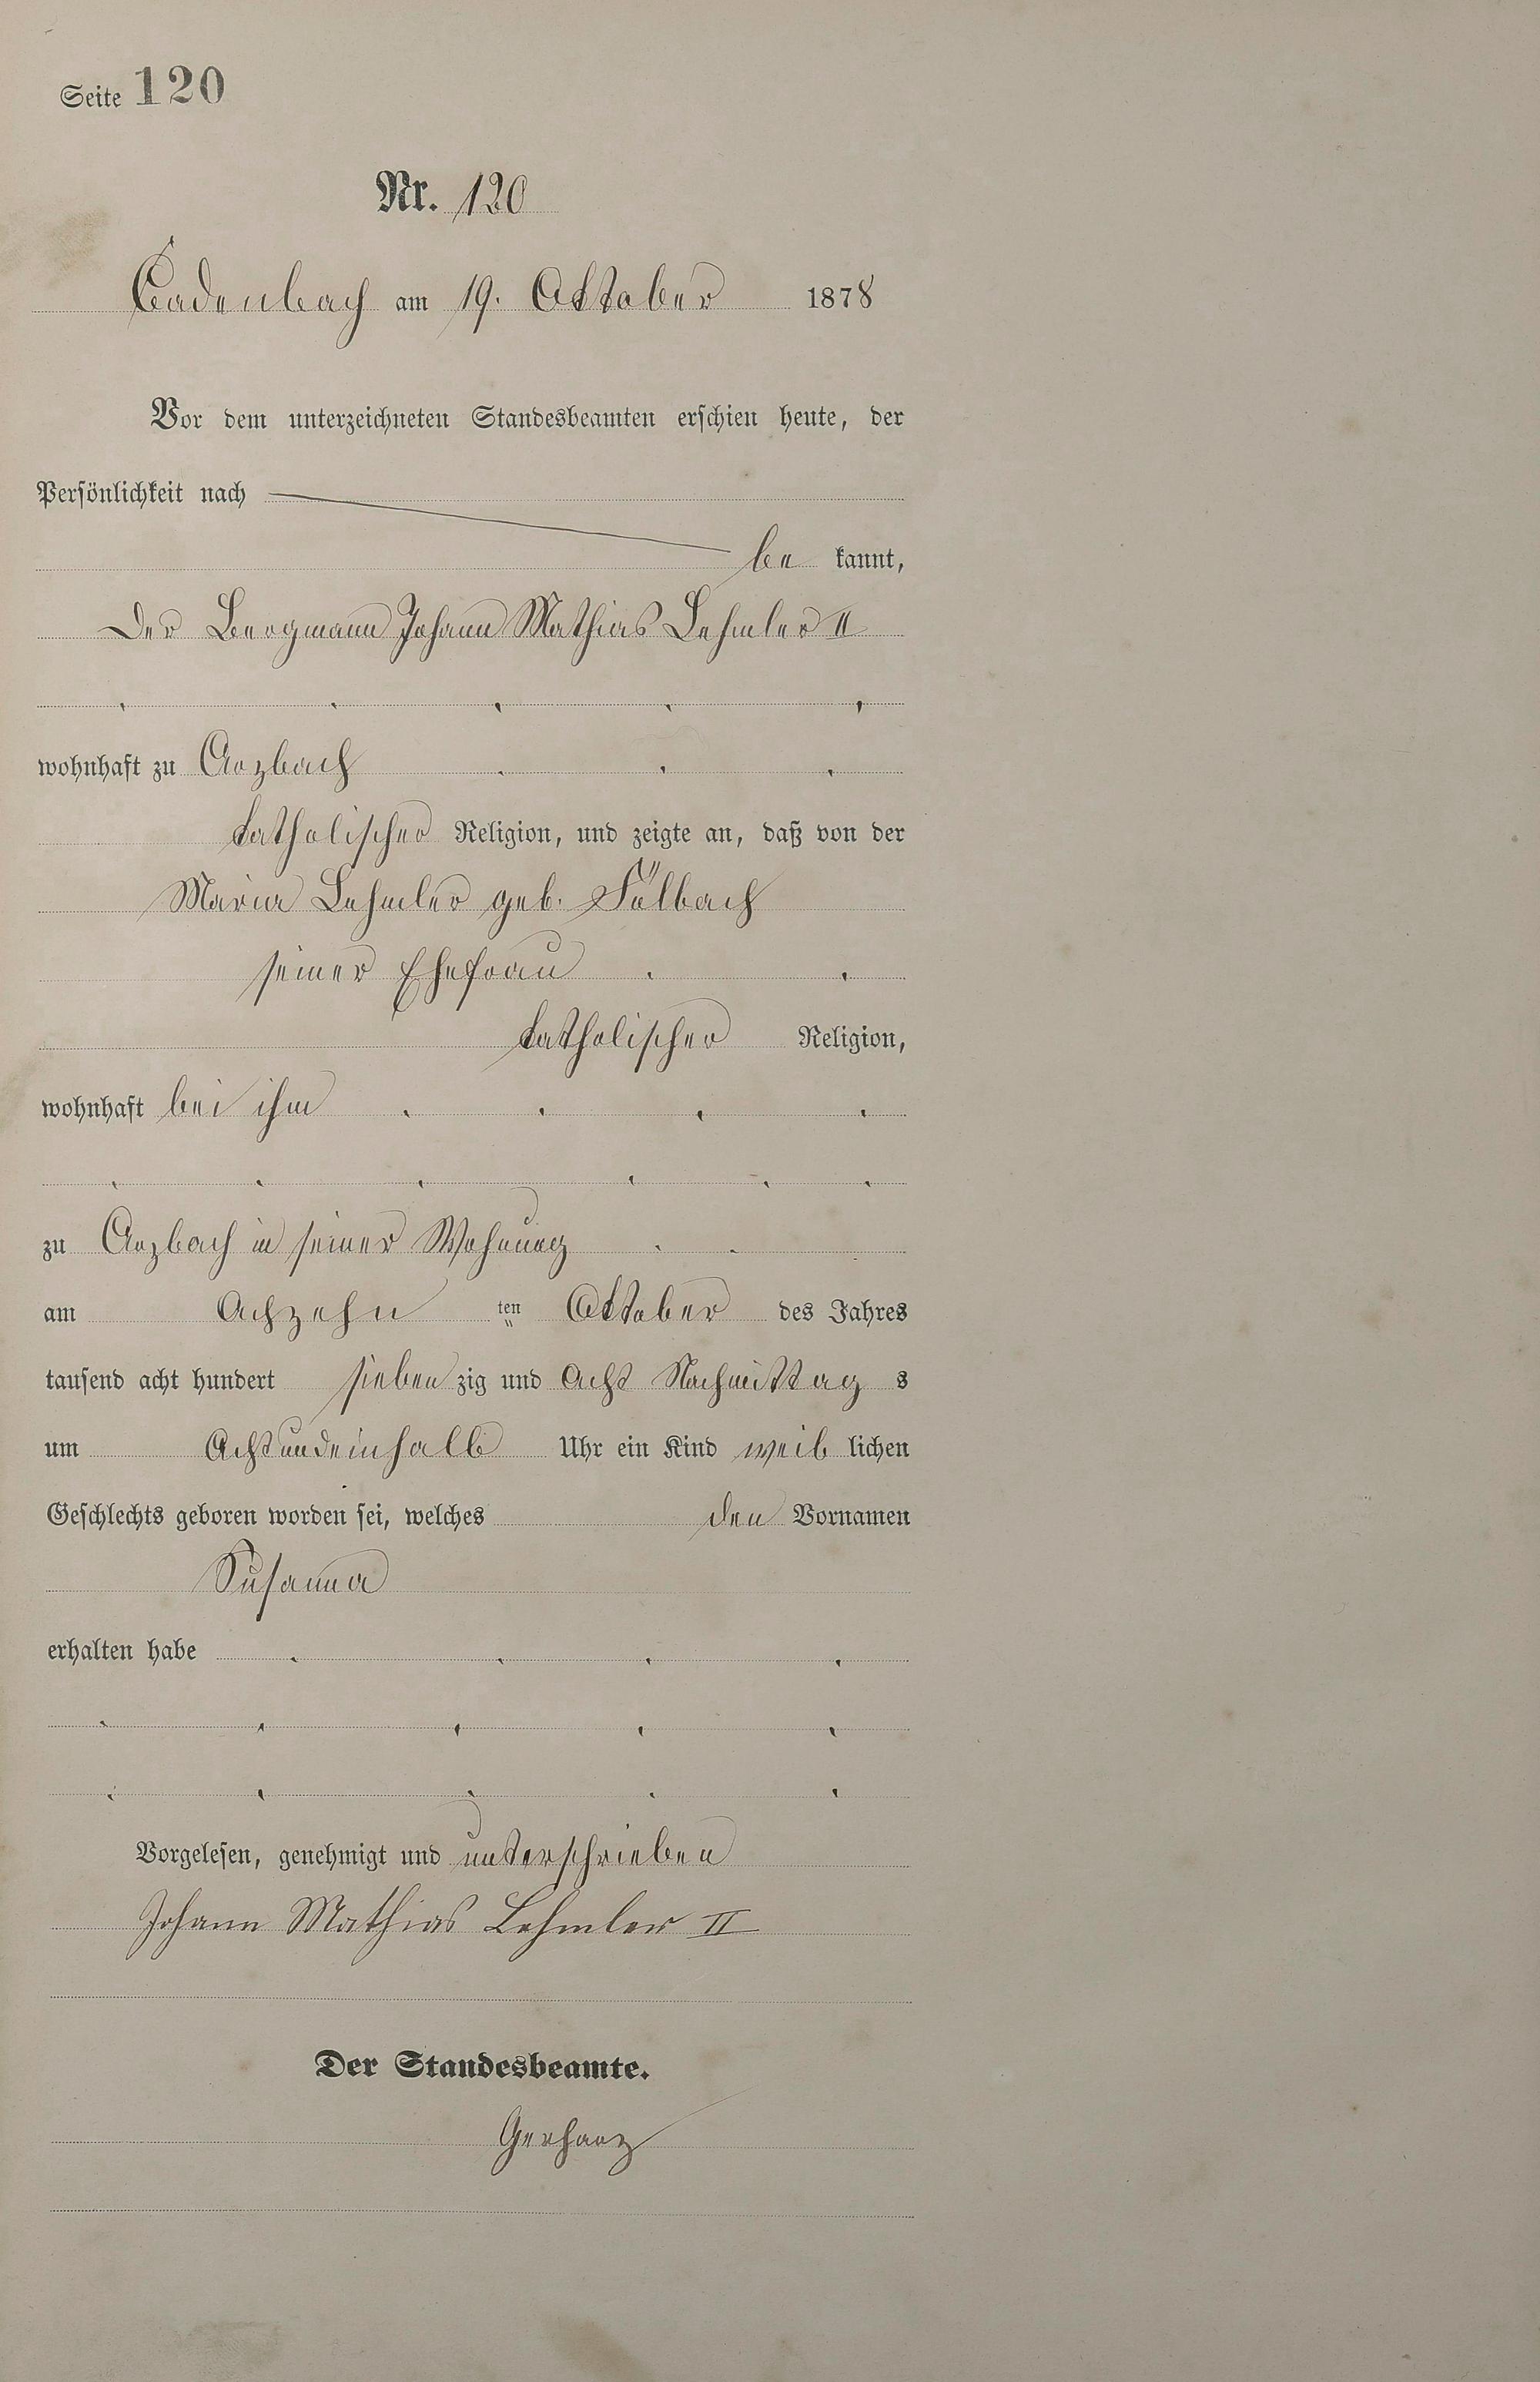 Seite 120
Nr. 120
Cadenbach am 19. Oktober 1878
Vor dem unterzeichneten Standesbeamten erschien heute, der
Persönlichkeit nach
be kannt,
Der Bergmann Johann Mathias Lehmler II
wohnhaft zu Arzbach
katholischer Religion, und zeigte an, daß von der
Maria Lehmler geb. Fülbach
seiner Ehefrau
katholischer Religion,
wohnhaft bei ihm
zu Arzbach in seiner Wohnung
am Achzehn ten Oktober des Jahres
tausend acht hundert sieben zig und Acht Nachmittag s
um Achtundeinhalb Uhr ein Kind weib lichen
Geschlechts geboren worden sei, welches den Vornamen
Susanna
erhalten habe
Vorgelesen, genehmigt und unterschrieben
Johann Mathias Lehmler II
Der Standesbeamte.
Gerharz